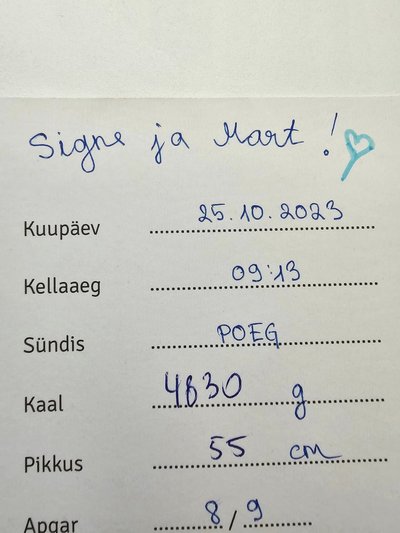 Signe ja Mart!
Kuupäev 25.10.2023
Kellaaeg 09:13
Sündis POEG
Kaal 4830 g
Pikkus 55 cm
Apgar 8/9